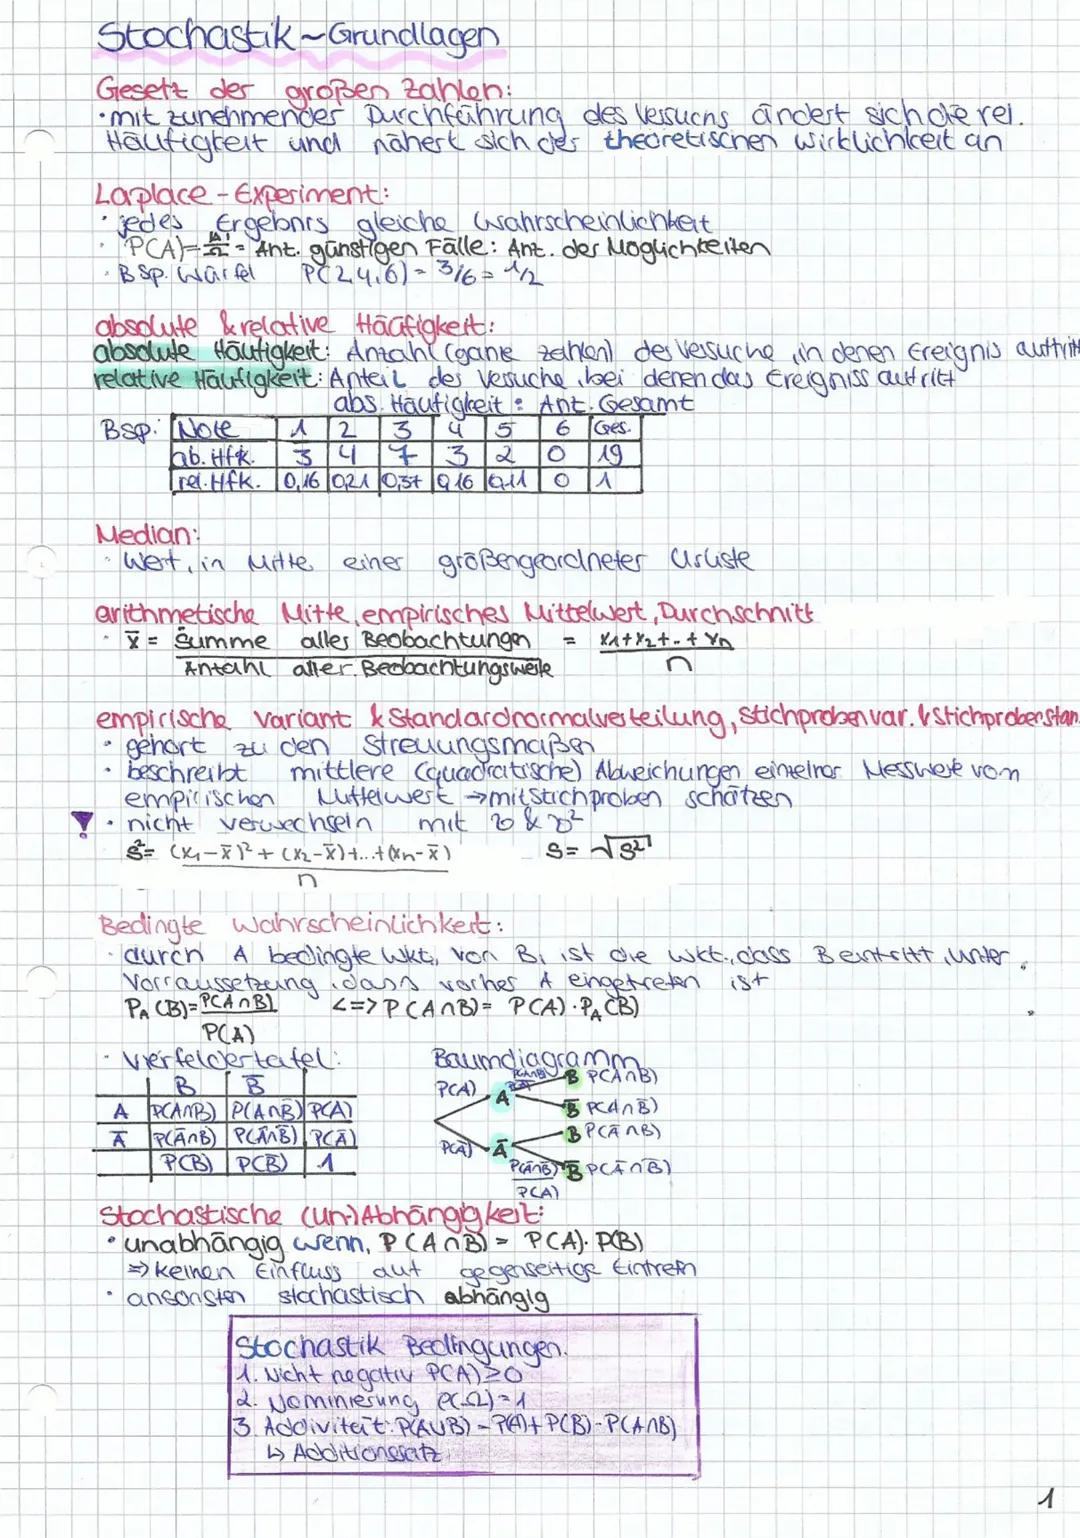 Stochastik~Grundlagen
Gesetz der großen Zahlen:
· mit zunehmender Durchführung des Versuchs ändert sich die rel.
Häufigkeit und nähert sich der theoretischen Wirklichkeit an
Laplace-Experiment:
· jedes Ergebnis gleiche Wahrscheinlichkeit
· P(A)=|A|/Ω = Ant. günstigen Fälle: Ant. der Möglichkeiten
· Bsp. Würfel P(2,4,6) = 3/6 = 1/2
absolute & relative Häufigkeit:
absolute Häufigkeit: Anzahl (ganze zahlen) des Versuche, in denen Ereignis auftritt
relative Häufigkeit: Anteil des Versuche, bei denen das Ereigniss auftritt
abs. Häufigkeit : Ant. Gesamt
Bsp.: Note 1 2 3 4 5 6 Ges.
ab. Hfk. 3 4 7 3 2 0 19
rel. Hfk. 0,16 0,21 0,37 0,16 0,11 0 1
Median:
· Wert, in Mitte einer größengeordneter Urliste
arithmetische Mitte, empirisches Mittelwert, Durchschnitt
· x̄ = Summe alles Beobachtungen = x₁+x₂+..+xₙ
Anzahl aller Beobachtungswerte n
empirische Variant & Standardnormalverteilung, Stichprobenvar. & Stichprobenstan.
· gehört zu den Streuungsmaßen
· beschreibt mittlere (quadratische) Abweichungen einzelner Messwerte vom
empirischen Mittelwert → mit Stichproben schätzen
! · nicht verwechseln mit σ & σ²
s² = (x₁-x̄)² + (x₂-x̄)+...+(xn-x̄) S = √s²
n
Bedingte Wahrscheinlichkeit:
· durch A bedingte Wkt, von B, ist die Wkt., dass B eintritt, unter
Vorraussetzung, dass vorher A eingetreten ist
P_A (B) = P(A∩B) <=> P(A∩B) = P(A)·P_A(B)
P(A)
· Vierfeldertafel: Baumdiagramm
B B̄
A P(A∩B) P(A∩B̄) P(A)
Ā P(Ā∩B) P(Ā∩B̄) P(Ā)
P(B) P(B̄) 1
P(A) A P(A∩B) P(A) B P(A∩B)
B̄ P(A∩B̄)
P(Ā) Ā B P(Ā∩B)
P(Ā∩B̄) B̄ P(Ā∩B̄)
P(A)
Stochastische (Un-)Abhängigkeit:
· unabhängig wenn, P(A∩B) = P(A)·P(B)
=> keinen Einfluss auf gegenseitige Eintreten
· ansonsten stochastisch abhängig
Stochastik Bedingungen.
1. Nicht negativ P(A)≥0
2. Nominierung P(Ω)=1
3. Addivität: P(A∪B) = P(A)+P(B)-P(A∩B)
↳ Additionssatz
1